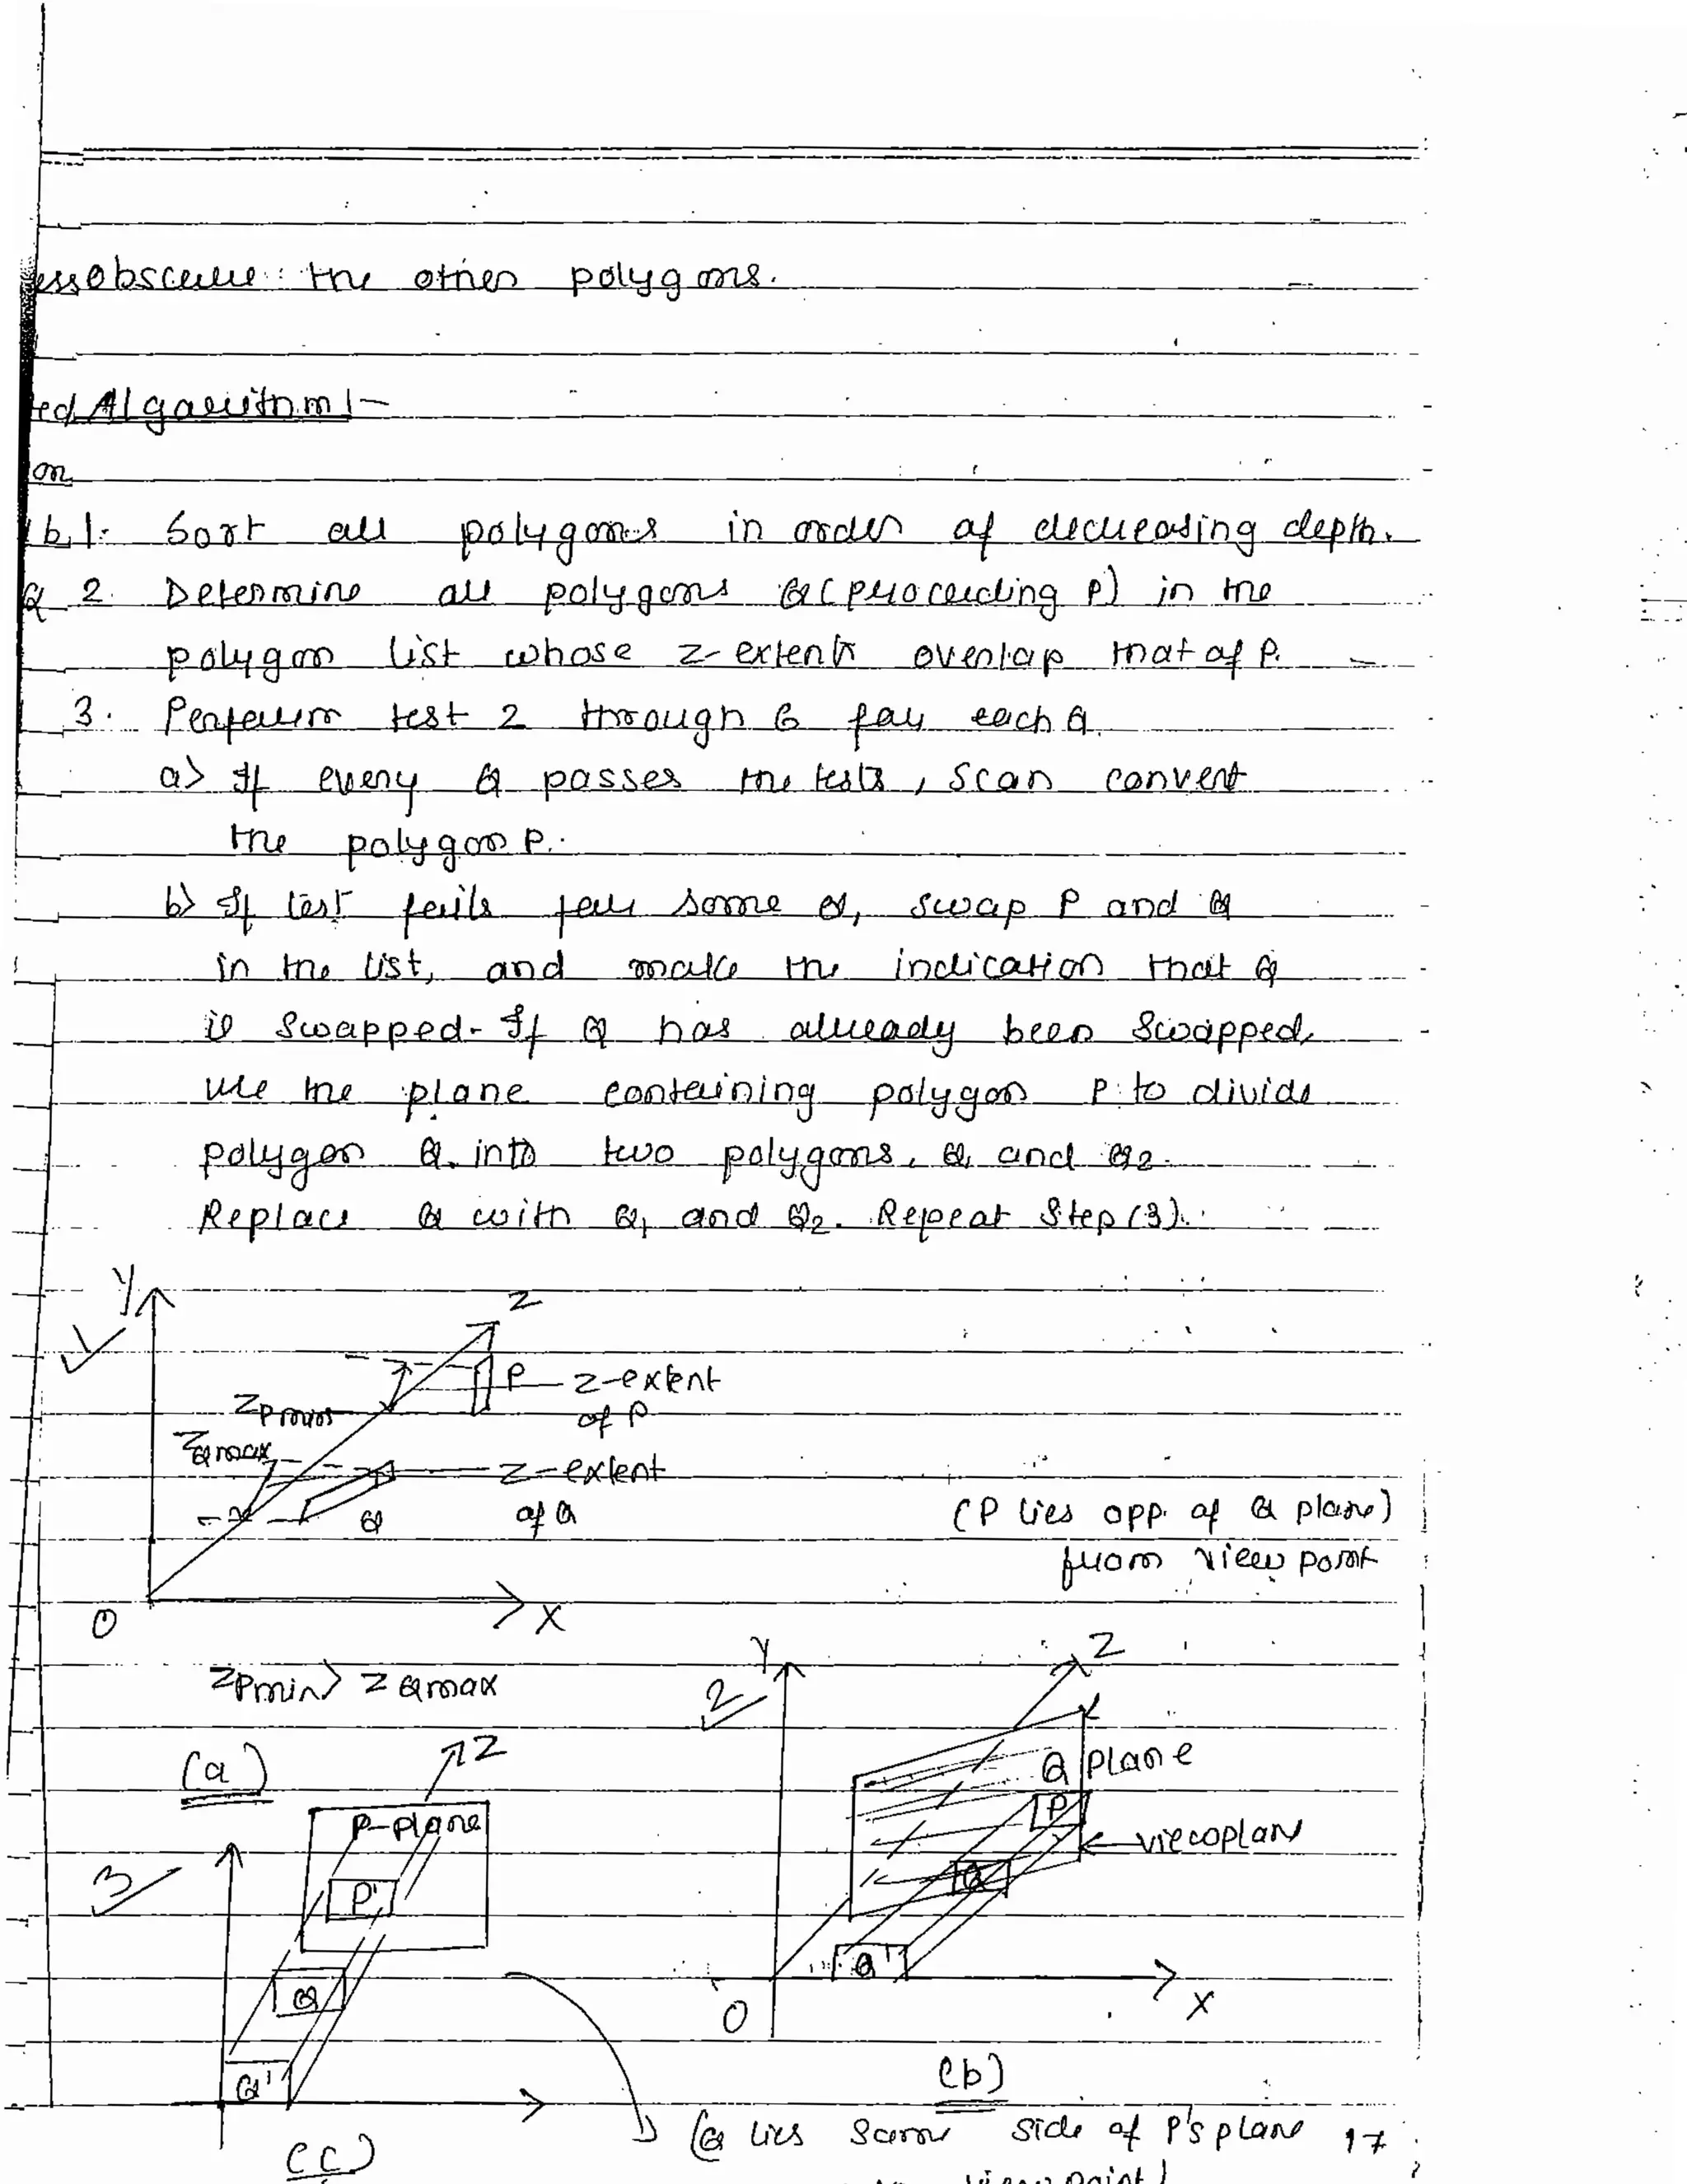 obscure the other polygons.
ed Algorithm :-
on
1. Sort all polygons in order of decreasing depth.
Q 2. Determine all polygons Q (proceeding P) in the
polygon list whose z-extents overlap that of P.
3. Perform test 2 through 6 for each Q.
a) If every Q passes the tests, scan convert
the polygon P.
b) If test fails for some Q, swap P and Q
in the list, and make the indication that Q
is swapped. If Q has already been swapped,
use the plane containing polygon P to divide
polygon Q into two polygons, Q1 and Q2.
Replace Q with Q1 and Q2. Repeat Step (3).
1 Y Z
P z-extent
of P
ZPmin
ZQmax
z-extent
of Q
Q
(P lies opp. of Q plane)
from view point
O X
ZPmin > ZQmax
(a)
2 Y Z
Q plane
P
viewplane
Q
Q'
O X
(b)
3 Z
P-plane
P'
Q
Q'
(c)
(Q lies same side of P's plane
view point)
17